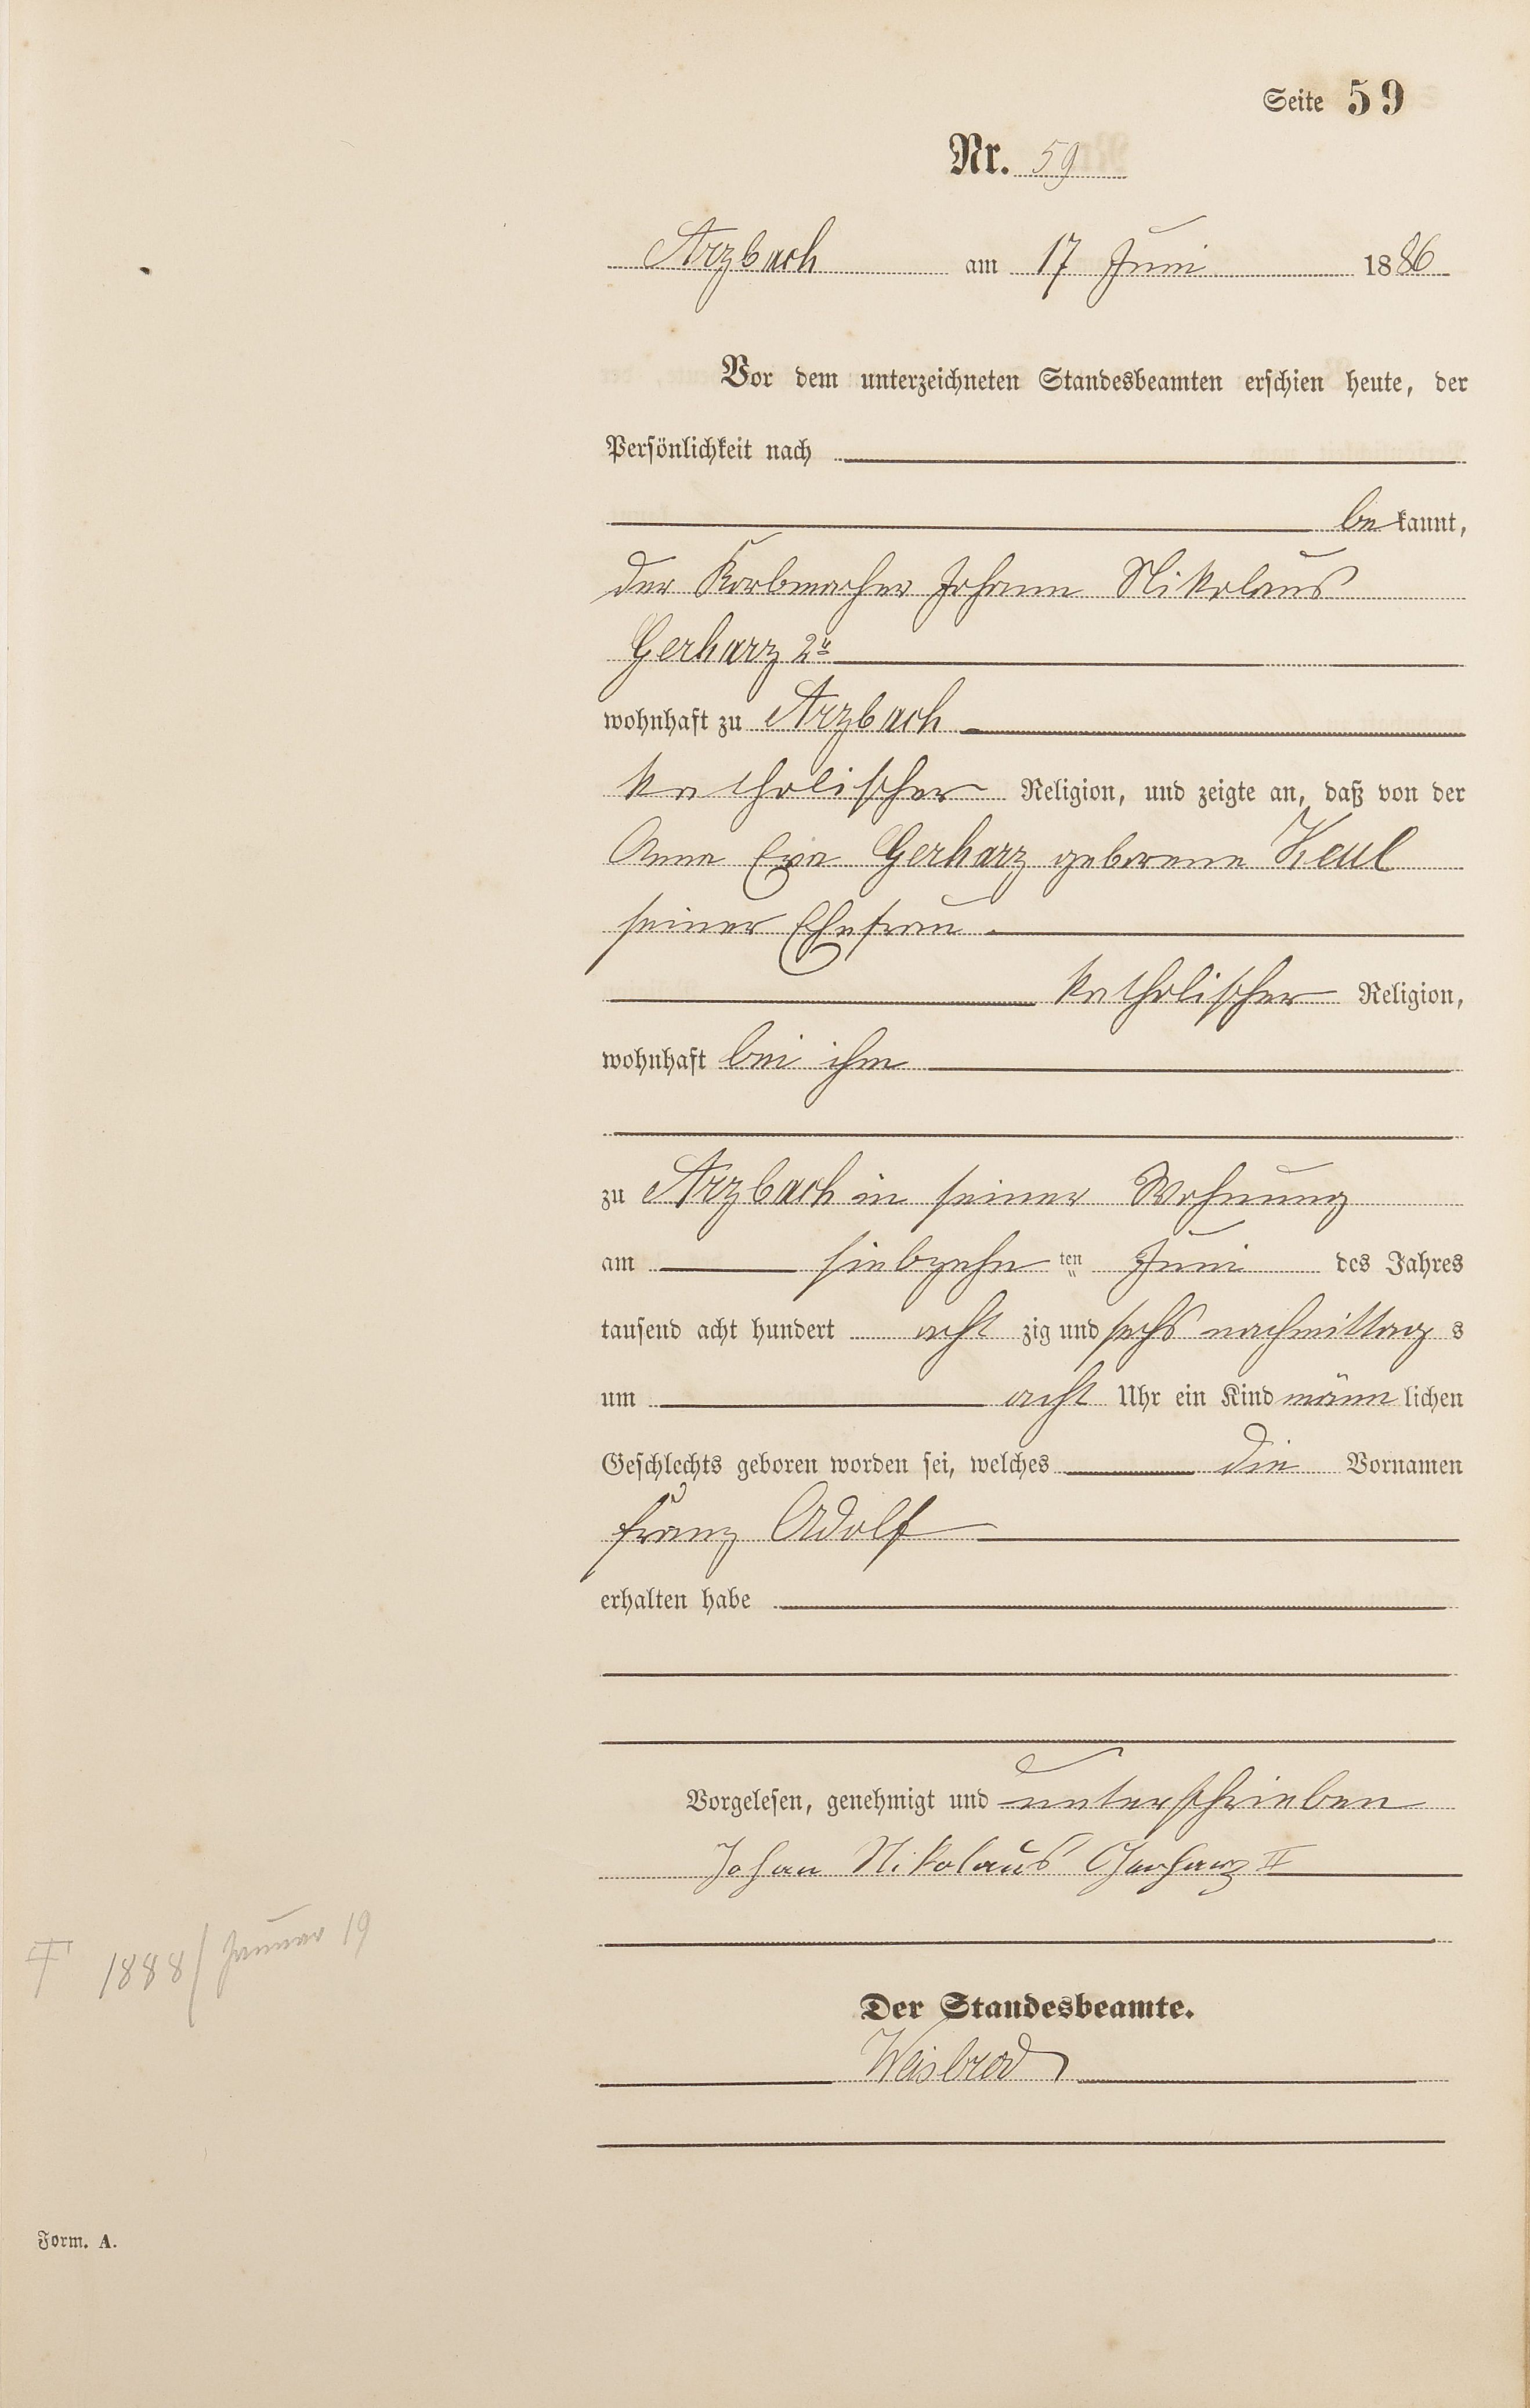 Seite 59
Nr. 59
Arzbach am 17 Juni 1886
Vor dem unterzeichneten Standesbeamten erschien heute, der
Persönlichkeit nach
bekannt,
der Korbmacher Johann Nikolaus
Gerharz 2r
wohnhaft zu Arzbach
katholischer Religion, und zeigte an, daß von der
Anna Eva Gerharz geborene Keul
seiner Ehefrau
katholischer Religion,
wohnhaft bei ihm
zu Arzbach in seiner Wohnung
am siebzehn ten Juni des Jahres
tausend acht hundert acht zig und sechs nachmittag s
um acht Uhr ein Kind männ lichen
Geschlechts geboren worden sei, welches die Vornamen
Franz Adolf
erhalten habe
Vorgelesen, genehmigt und unterschrieben
Johan Nikolaus Gerharz II
† 1888/ Januar 19
Der Standesbeamte.
Weisbrod
Form. A.